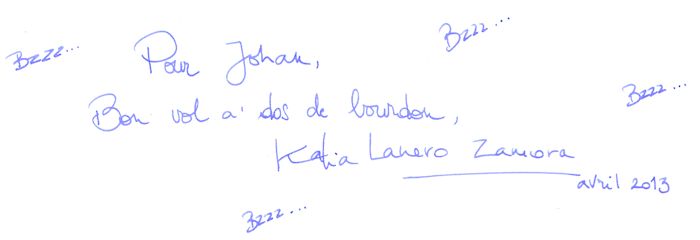 Bzzz...
Bzzz...
Pour Johan,
Bzzz...
Bon vol à dos de bourdon,
Katia Lanero Zamora
avril 2013
Bzzz...